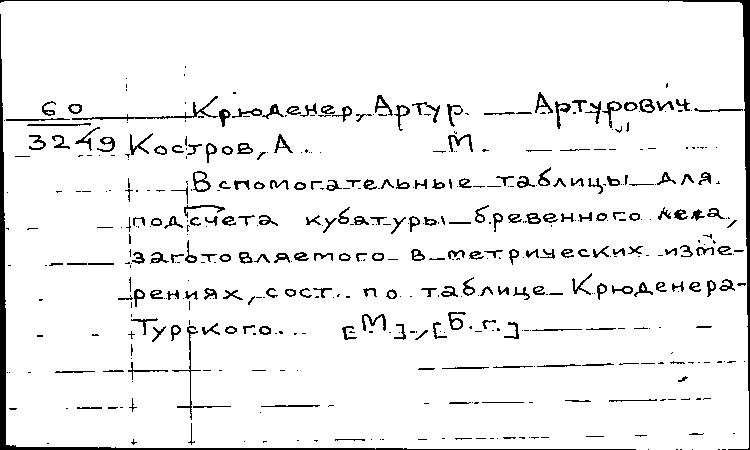 60 Крюденер, Артур Артурович
3249 Костров, А. М.
Вспомогательные таблицы для
подсчета кубатуры бревенного леса,
заготовляемого в метрических изме-
рениях, сост. по таблице Крюденера-
Турского... [М]., [Б. г.]